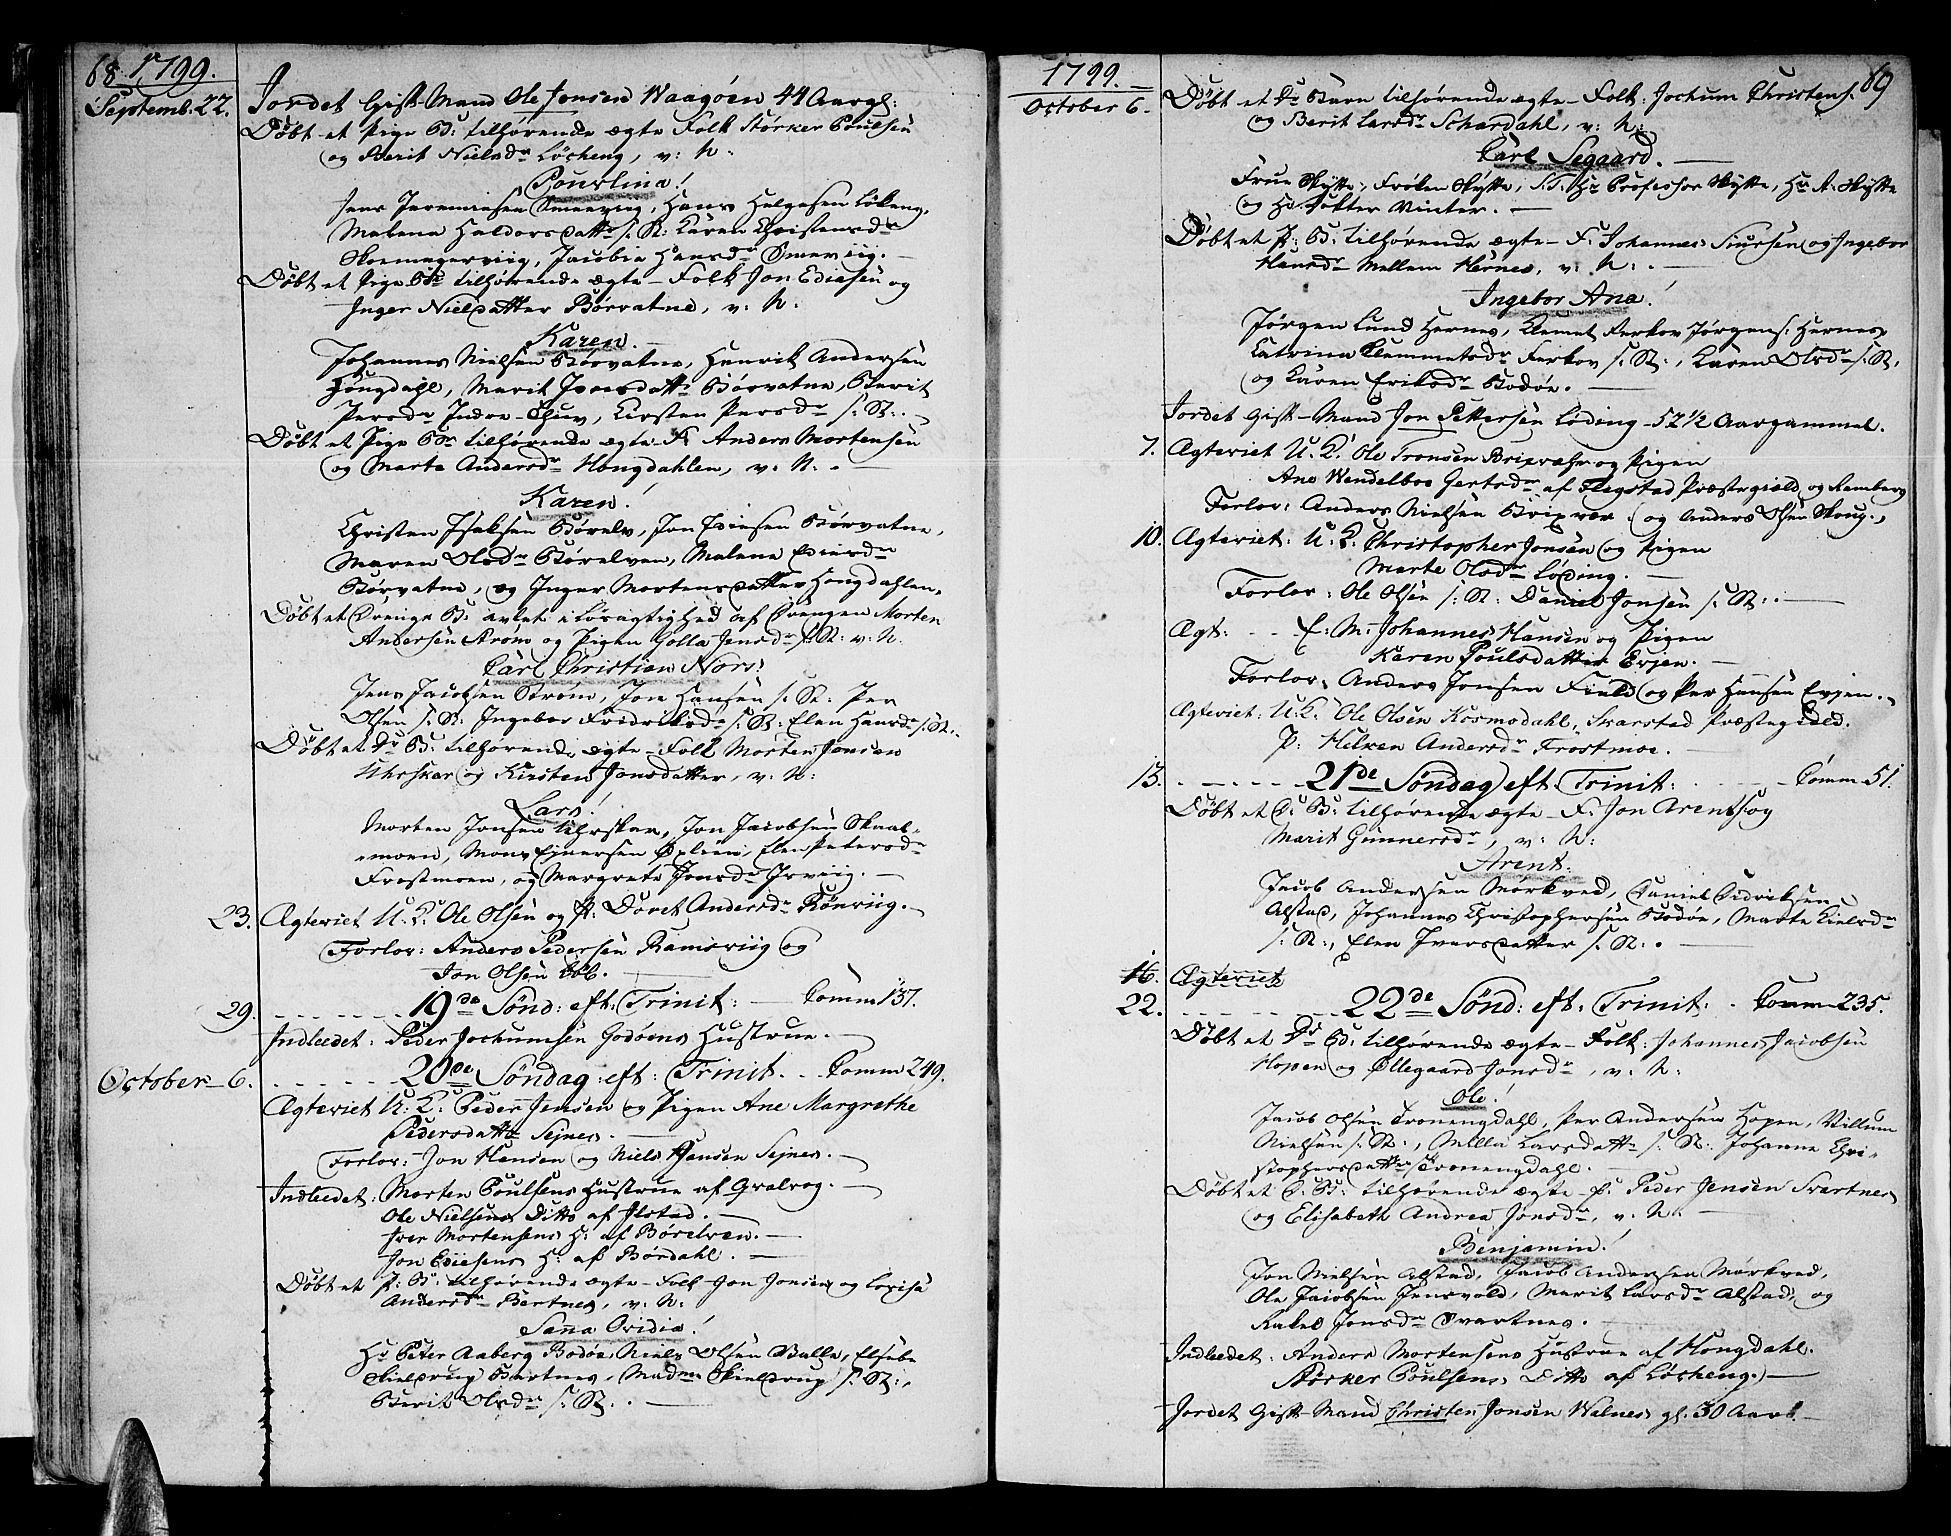 68. 1799.
Septemb. 22. Jordet Gift Mand Ole Jonsen Waagøen 44 Aar gl:
Døbt et Pige B: tilhørende ægte Folk Størker Poulsen
og Berit Nielsdr Løcheng, v: N:
Pourlina!
Jens Jeremiesen Smeeviig, Hans Helgesen Løkeng,
Malena Haldorsdattr s: St: Karen Christensdr
Skomagerviig, Jacobia Hansdr Smeeviig.
Døbt et Pige Br tilhørende ægte Folk Jon Ediesen og
Inger Nielsdatter Børvatne, v: N:
Karen.
Johannes Nielsen Børvatne, Henrik Andersen
Hougdahl, Marit Iversdattr Børvatne, Berit
Persdr Indre-Thuv, Kirsten Persdr s: St:.
Døbt et Pige Br tilhørende ægte F: Anders Mortensen
og Marte Andersdr Hongdahlen, v: N:.
Karen!
Christen Isaksen Børelv, Jon Ediesen Børvatne,
Maren Olsdr Børelven, Malena Ediesdr
Børvatne, og Inger Mortensdatter Hongdahlen.
Døbt et Drenge B: avlet i Løsagtighed af Drengen Morten
Andersen Strøm og Pigen Golla Jensdr s: St: v: N.
Carl Christian Nors!
Jens Jacobsen Strøm, Jon Hansen s: St: Per
Olsen s: St: Ingebor Fridriksdr s: St: Elen Hansdr s: St:.
Døbt et Dr B: tilhørende ægte Folk Morten Jonsen
Uhrskar og Kirsten Jonsdatter, v: N:
Lars!
Morten Jonsen Uhrskar, Jon Jacobsen Skaal-
moen, Mons Ejnersen Øxlien, Elen Petersdr
Frostmoen, og Margrete Jonsdr Isviig.
23. Ægteviet U: K: Ole Olsen og P: Doret Andersdr Rønviig.
Forlov: Anders Pedersen Ramsviig og
Jon Olsen ibid.
29. 19de Sønd: eft: Trinit: Comm 137.
Indleedet: Peder Jochumsen Godøens Hustrue.
October 6. 20de Søndag eft: Trinit. Comm 249.
Ægteviet U: K: Peder Jensen og Pigen Ane Margrethe
Pedersdattr Sejnes.
Forlov: Jon Hansen og Niels Hansen Sejnes.
Indleedet: Morten Poulsens Hustrue af Hvalvog.
Ole Nielsens Ditto af Ilstad.
Iver Mortensens H: af Børelven.
Jon Ediesens H: af Børdahl.
Døbt et P: B: tilhørende ægte Folk Jon Jonsen og Lovisa
Andersdr Bertnes, v: N:
Sanna Ovidia!
Hr Peter Aaberg Bodøe, Niels Olsen Valle, Elsebe
Skieldrup Bertnes, Madme Skieldrup s: St:,
Berit Olsdr s: St:.
1799. 69
October 6. Døbt et Dr Barn tilhørende ægte Folk: Jochum Christens.
og Berit Larsdr Schardahl, v: N:
Carl Segaard.
Frue Skytte, Frøken Skytte, S.T. Hr Professor Skytte, Hr A: Skytte
og Hr Dokter Vinter.
Døbt et P: B: tilhørende ægte F: Johannes Siursen og Ingebor
Hansdr Mellem Hernes, v: N:.
Ingebor Ana!
Jørgen Lund Hernes, Klemet Ferkov Jørgens: Hernes
Catrina Klemmetsdr Ferkov s: St:, Karen Olsdr s: St,
og Karen Eriksdr Bodøe.
Jordet Gift Mand Jon Pettersen Løding 52 1/2 Aar gammel.
7. Ægteviet U: K: Ole Tronsen Brixvær og Pigen
Ane Wendelboe Gertsdr af Flagstad Præstegield og Ramberg
Forlov: Anders Nielsen Brixvær og Anders Olsen Skoug.
10. Ægteviet: U: K: Christopher Jonsen og Pigen
Marte Olsdr Løding.
Forlov: Ole Olsen s: St: Daniel Jonsen s: St:.
Ægt: E: M: Johannes Hansen og Pigen
Karen Poulsdatter Evjen.
Forlov: Anders Jonsen Field og Per Hansen Evjen.
Ægteviet: U: K: Ole Olsen Kosmodahl, Skierstad Præstegield.
P: Helken Andersdr Frostmoe.
13. 21de Søndag eft Trinit: Comm 51.
Døbt et D: B: tilhørende ægte F: Jon Arents: og
Marit Gunnersdr, v: N:
Arent:
Jacob Andersen Mørkved, Daniel Didriksen
Alstad, Johannes Christophersen Bodøe, Marte Nielsdr
s: St:, Elen Iversdatter s: St:.
16. Ægteviet
22. 22de Sønd: eft: Trinit: Comm 235.
Døbt et Dr B: tilhørende ægte Folk: Johannes Jacobsen
Hopen og Øllegaard Jonsdr, v: N:
Ole!
Jacob Olsen Tronengdahl, Per Andersen Hopen, Villum
Nielsen s: St:, Milla Larsdattr s: St: Johanne Chri-
stophersdattr Tronengdahl.
Døbt et D: B: tilhørende ægte F: Peder Jensen Svartnes
og Elisabeth Andrea Jonsdr, v: N:
Benjamin!
Jon Nielsen Alstad, Jacob Andersen Mørkved,
Ole Jacobsen Jensvold, Marit Larsdr Alstad, og
Rakel Jonsdr Svartnes.
Indleedet: Anders Mortensens Hustrue af Hongdahl.
Størker Poulsens Ditto af Løcheng.
Jordet Gift Mand Christen Jonsen Walnes gl. 30 Aar.